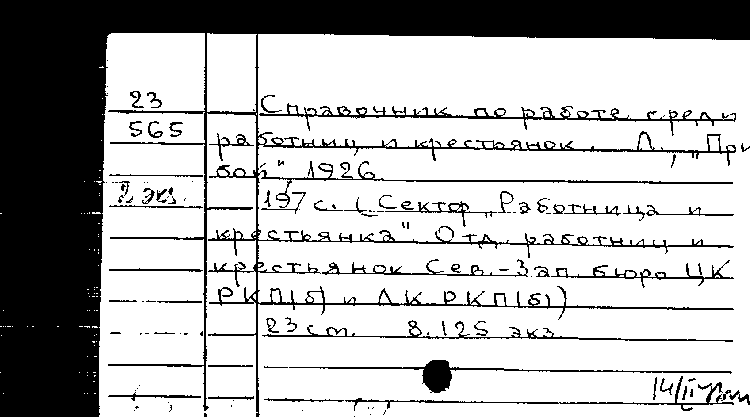 23
Справочник по работе среди
565
работниц и крестьянок. Л., "При
бой", 1926.
2 экз.
197 с. (Сектор "Работница и
крестьянка". Отд. работниц и
крестьянок Сев.-Зап. бюро ЦК
РКП(б) и ЛК РКП(б))
23 ст. 8.125 экз.
14/II